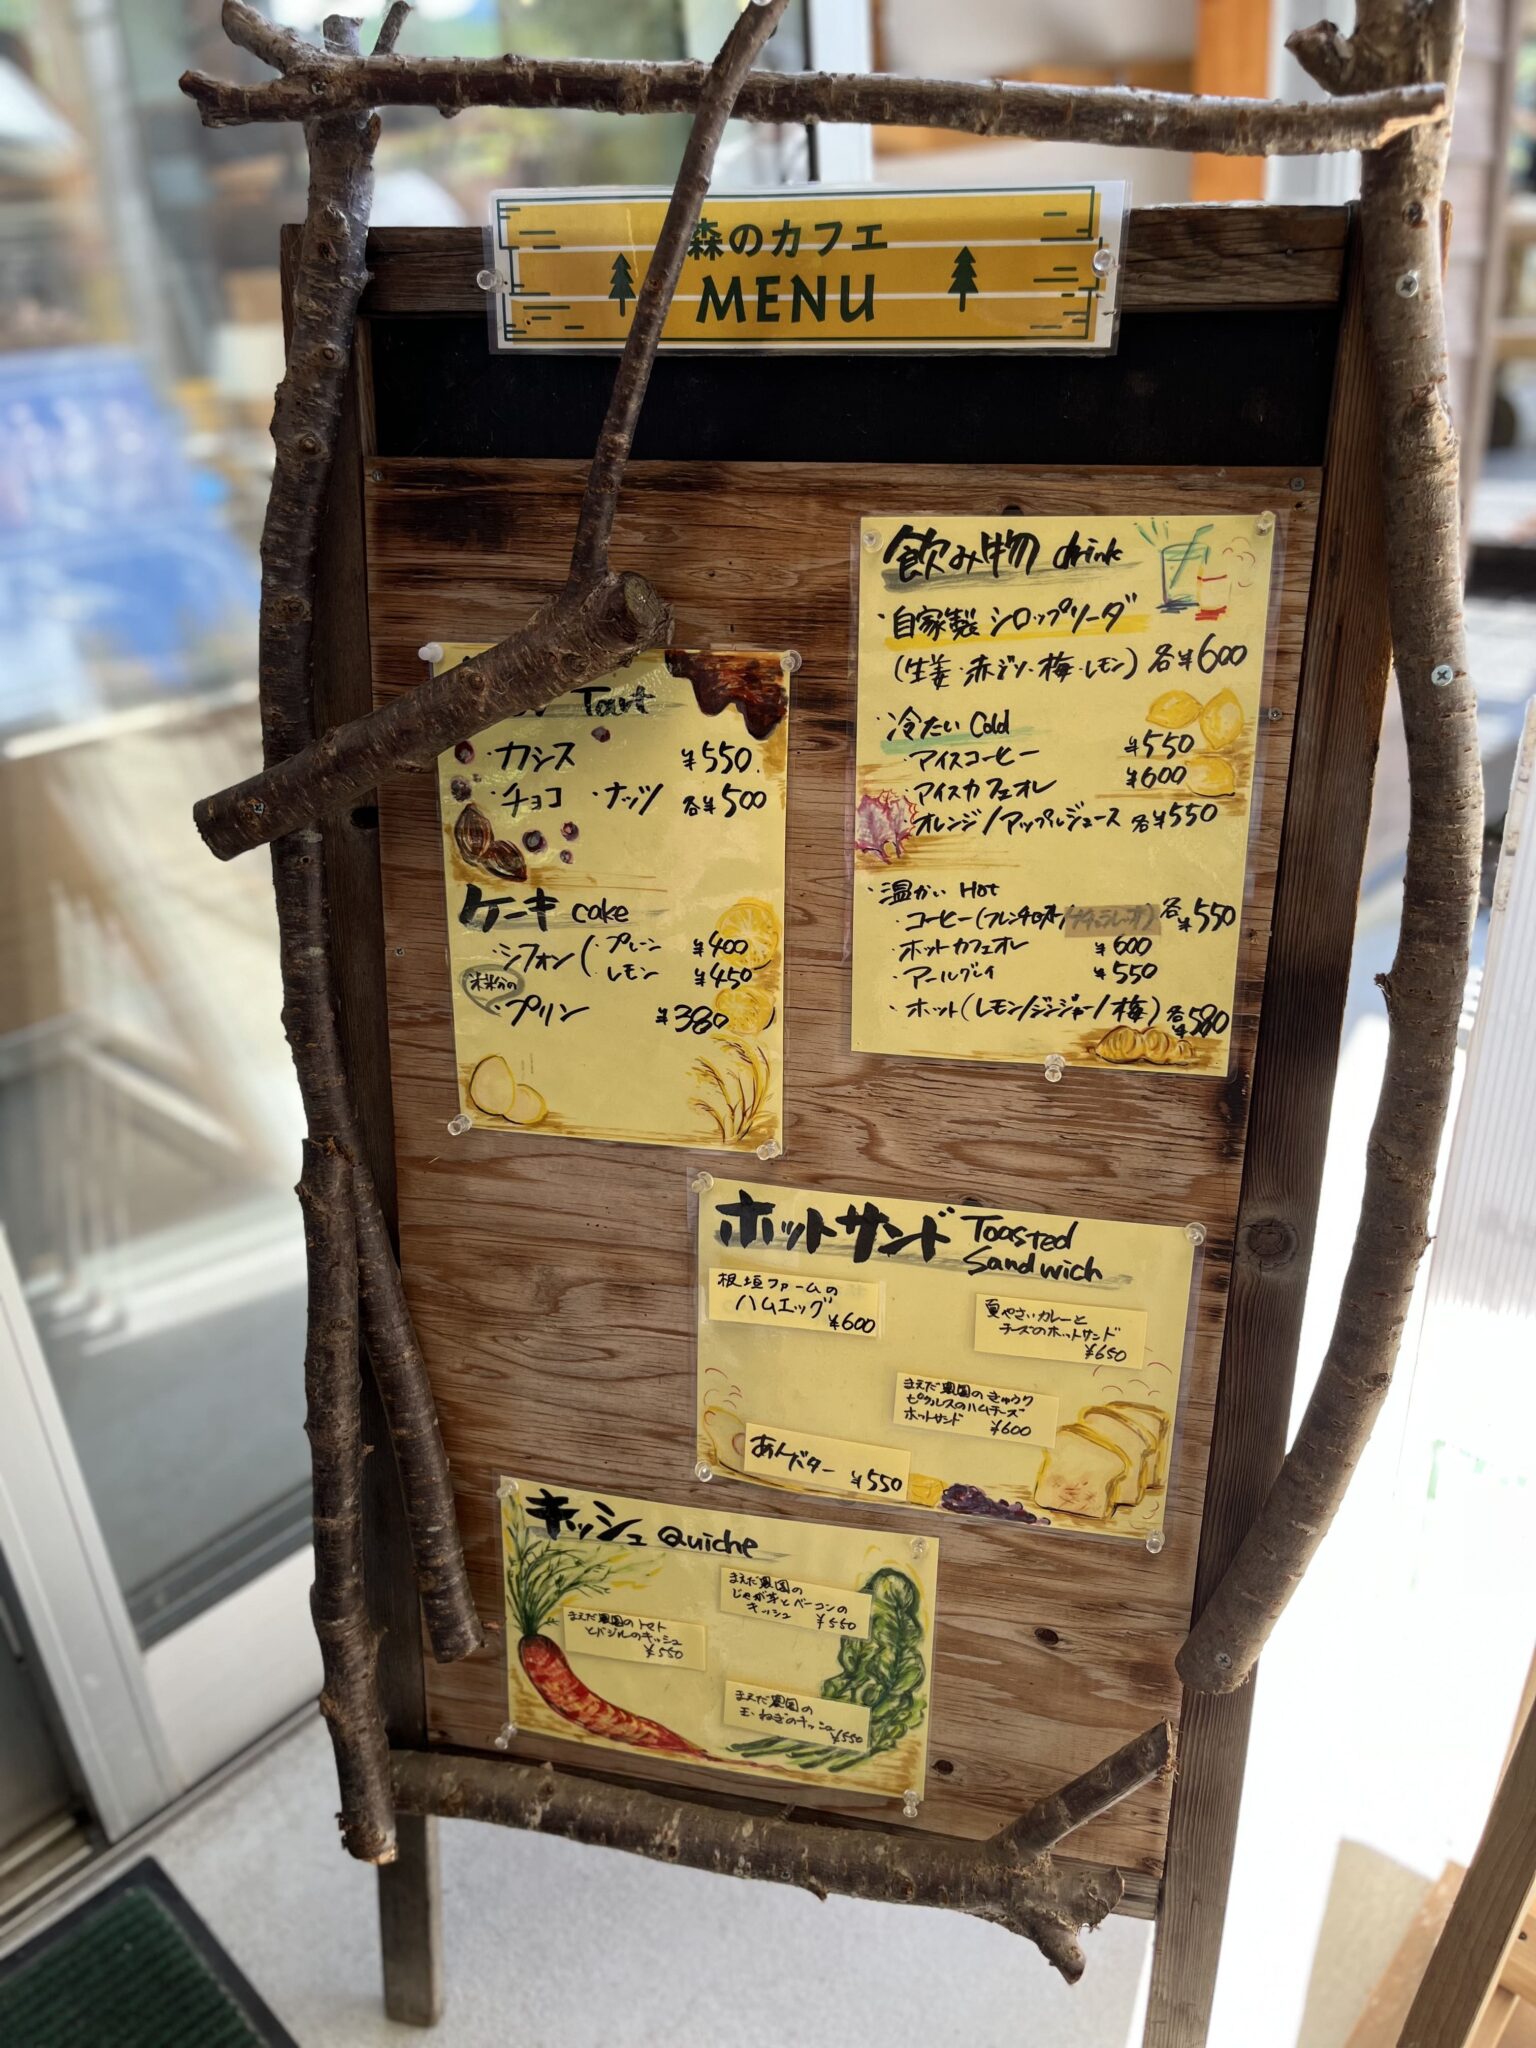 森のカフェ
MENU
Tart
・カシス ¥550.
・チョコ ・ナッツ 各¥500
ケーキ cake
・シフォン(・プレーン ¥400
・レモン ¥450
米粉の
・プリン ¥380
飲み物 drink
・自家製 シロップソーダ
(生姜・赤ジソ・梅・レモン) 各¥600
・冷たい Cold
・アイスコーヒー ¥550
・アイスカフェオレ ¥600
・オレンジ/アップルジュース 各¥550
・温かい Hot
コーヒー(フレンチロースト/ 各¥550
・ホットカフェオレ ¥600
・アールグレイ ¥550
・ホット(レモン/ジンジャー/梅) 各¥580
ホットサンド Toasted
Sandwich
板垣ファームの
ハムエッグ ¥600
夏やさいカレーと
チーズのホットサンド
¥650
まえだ農園のきゅうり
ピクルスのハムチーズ
ホットサンド ¥600
あんバター ¥550
キッシュ Quiche
まえだ農園の
じゃが芋とベーコンの
キッシュ ¥550
まえだ農園のトマト
とバジルのキッシュ
¥550
まえだ農園の
玉ねぎのキッシュ ¥550